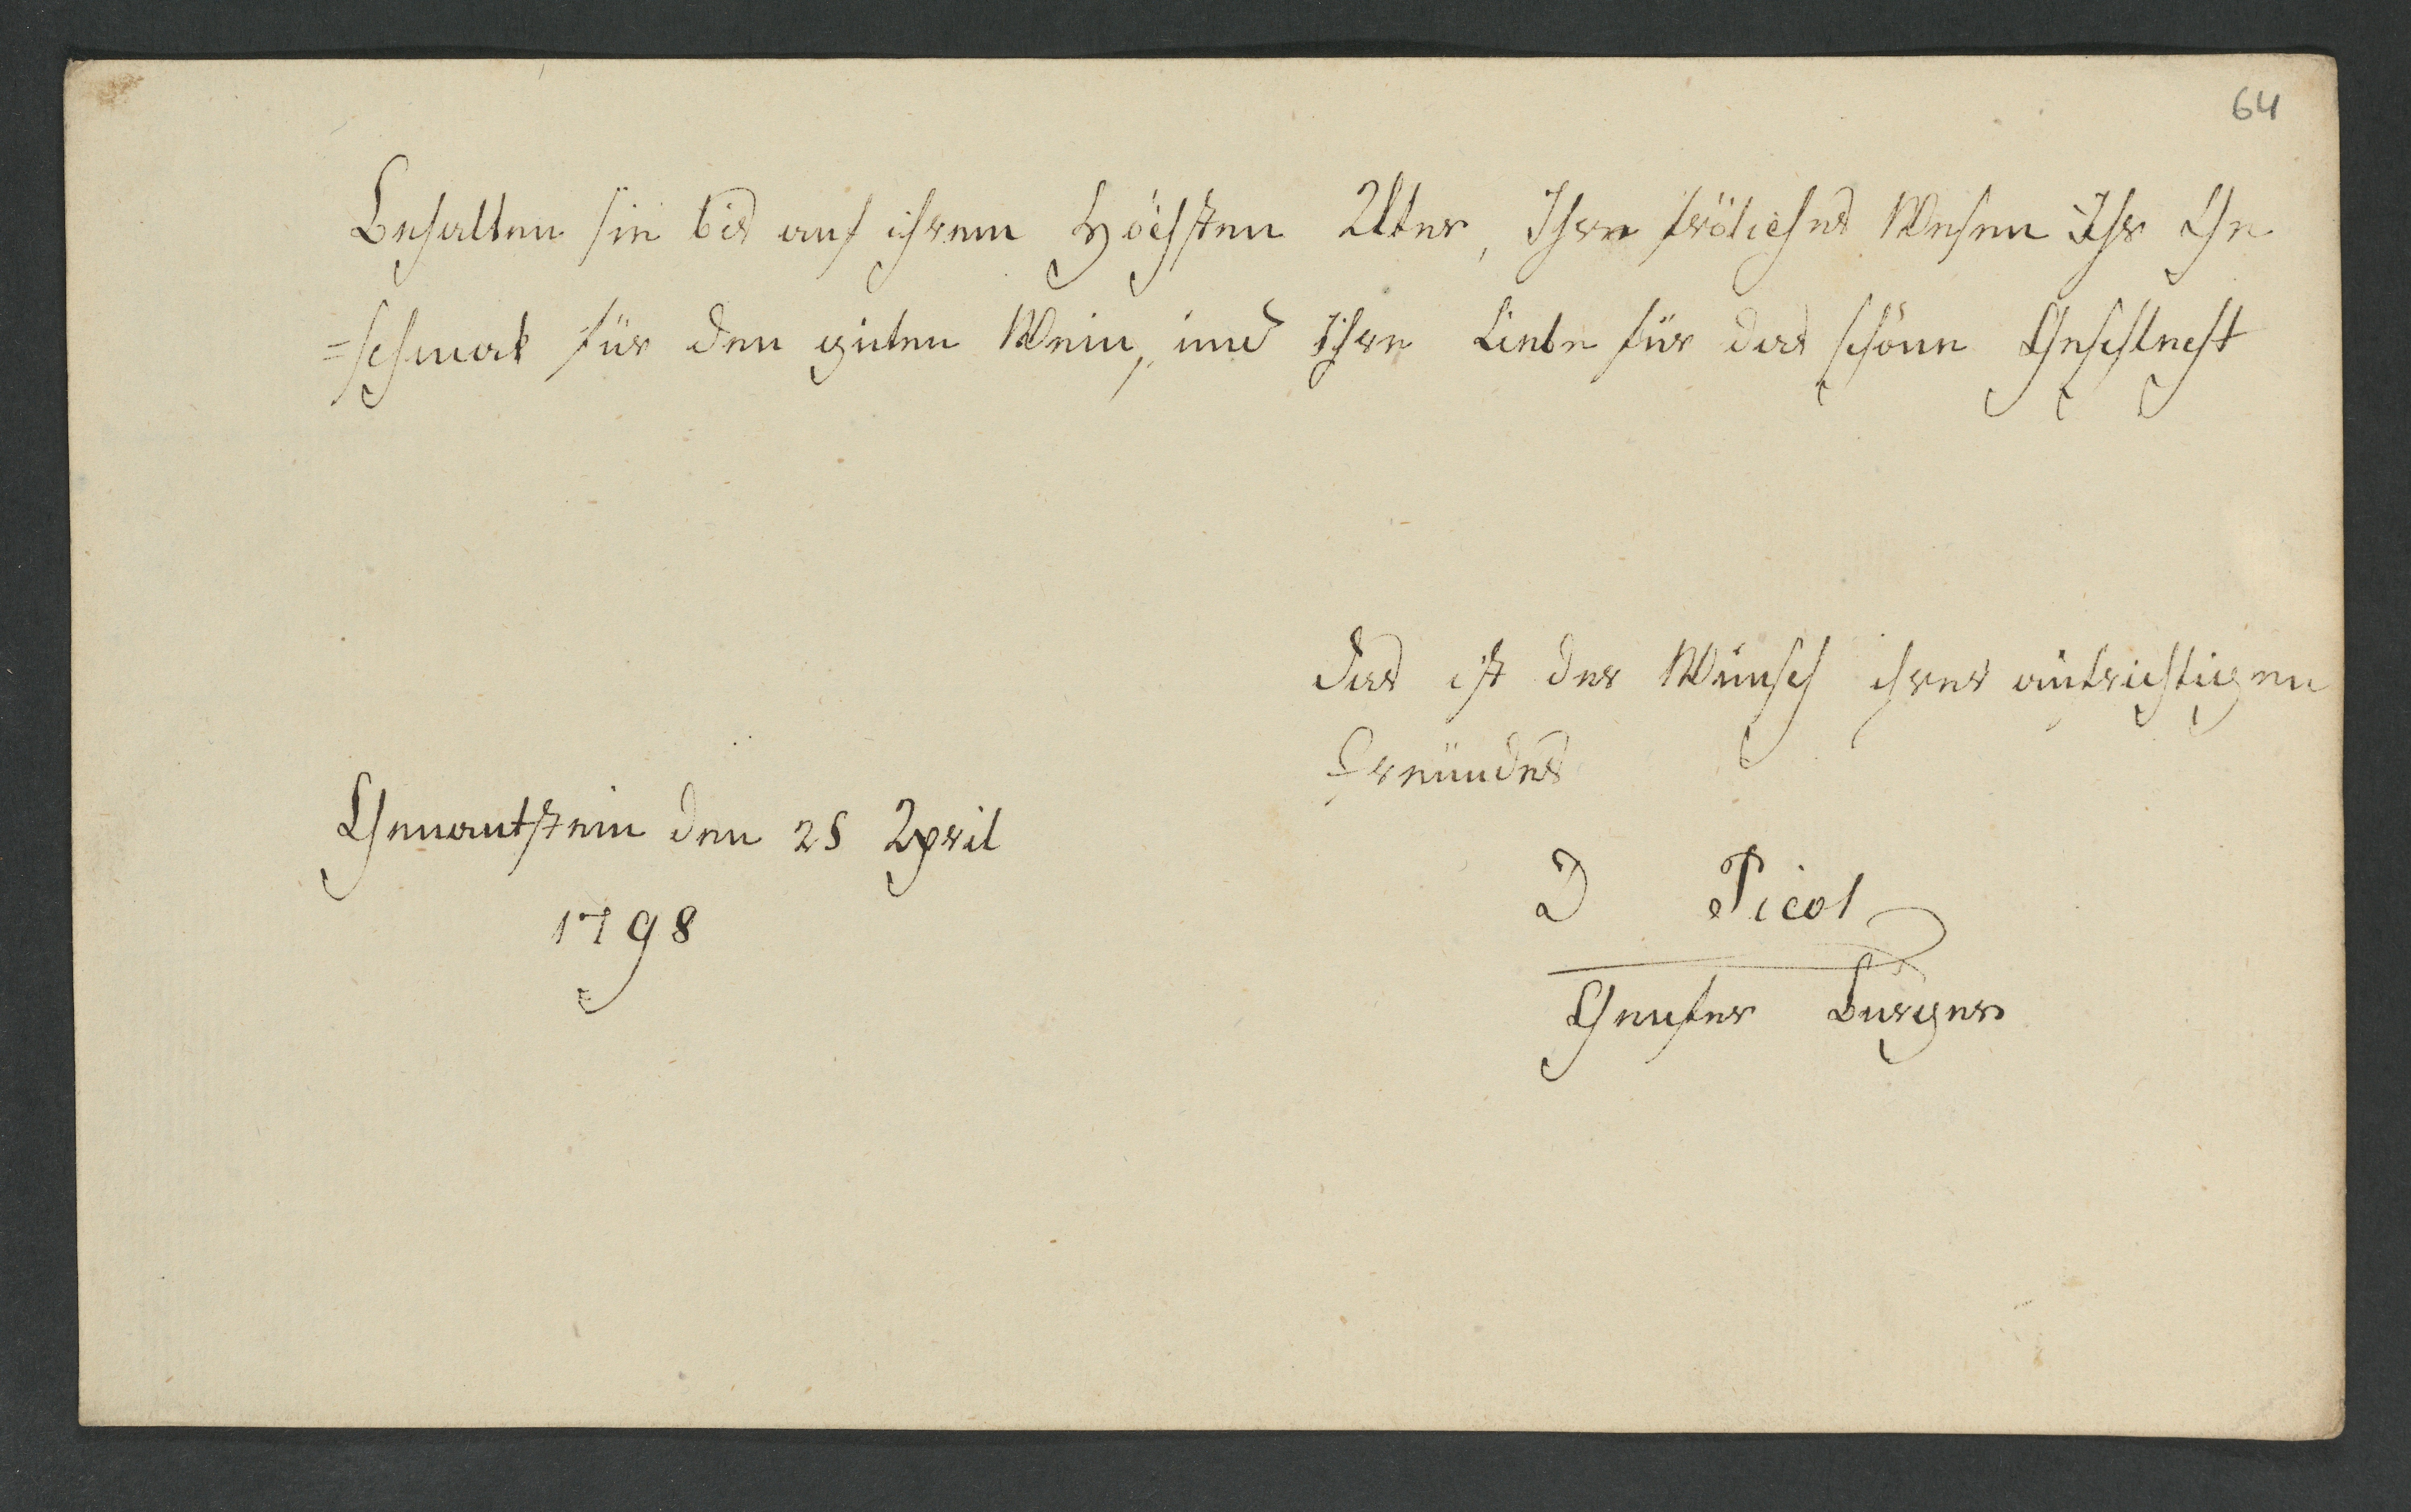 64
Behalten sie bis auf ihrem Höchsten Alter, Ihre fröliches Wesen Ihr Ge
=schmak für den guten Wein, und Ihre Liebe für das schöne Geschlecht
Das ist der Wunsch ihres aufrichtigen
Freundes
Genantstein den 25 April
1798
D Picot
Genfer Burger